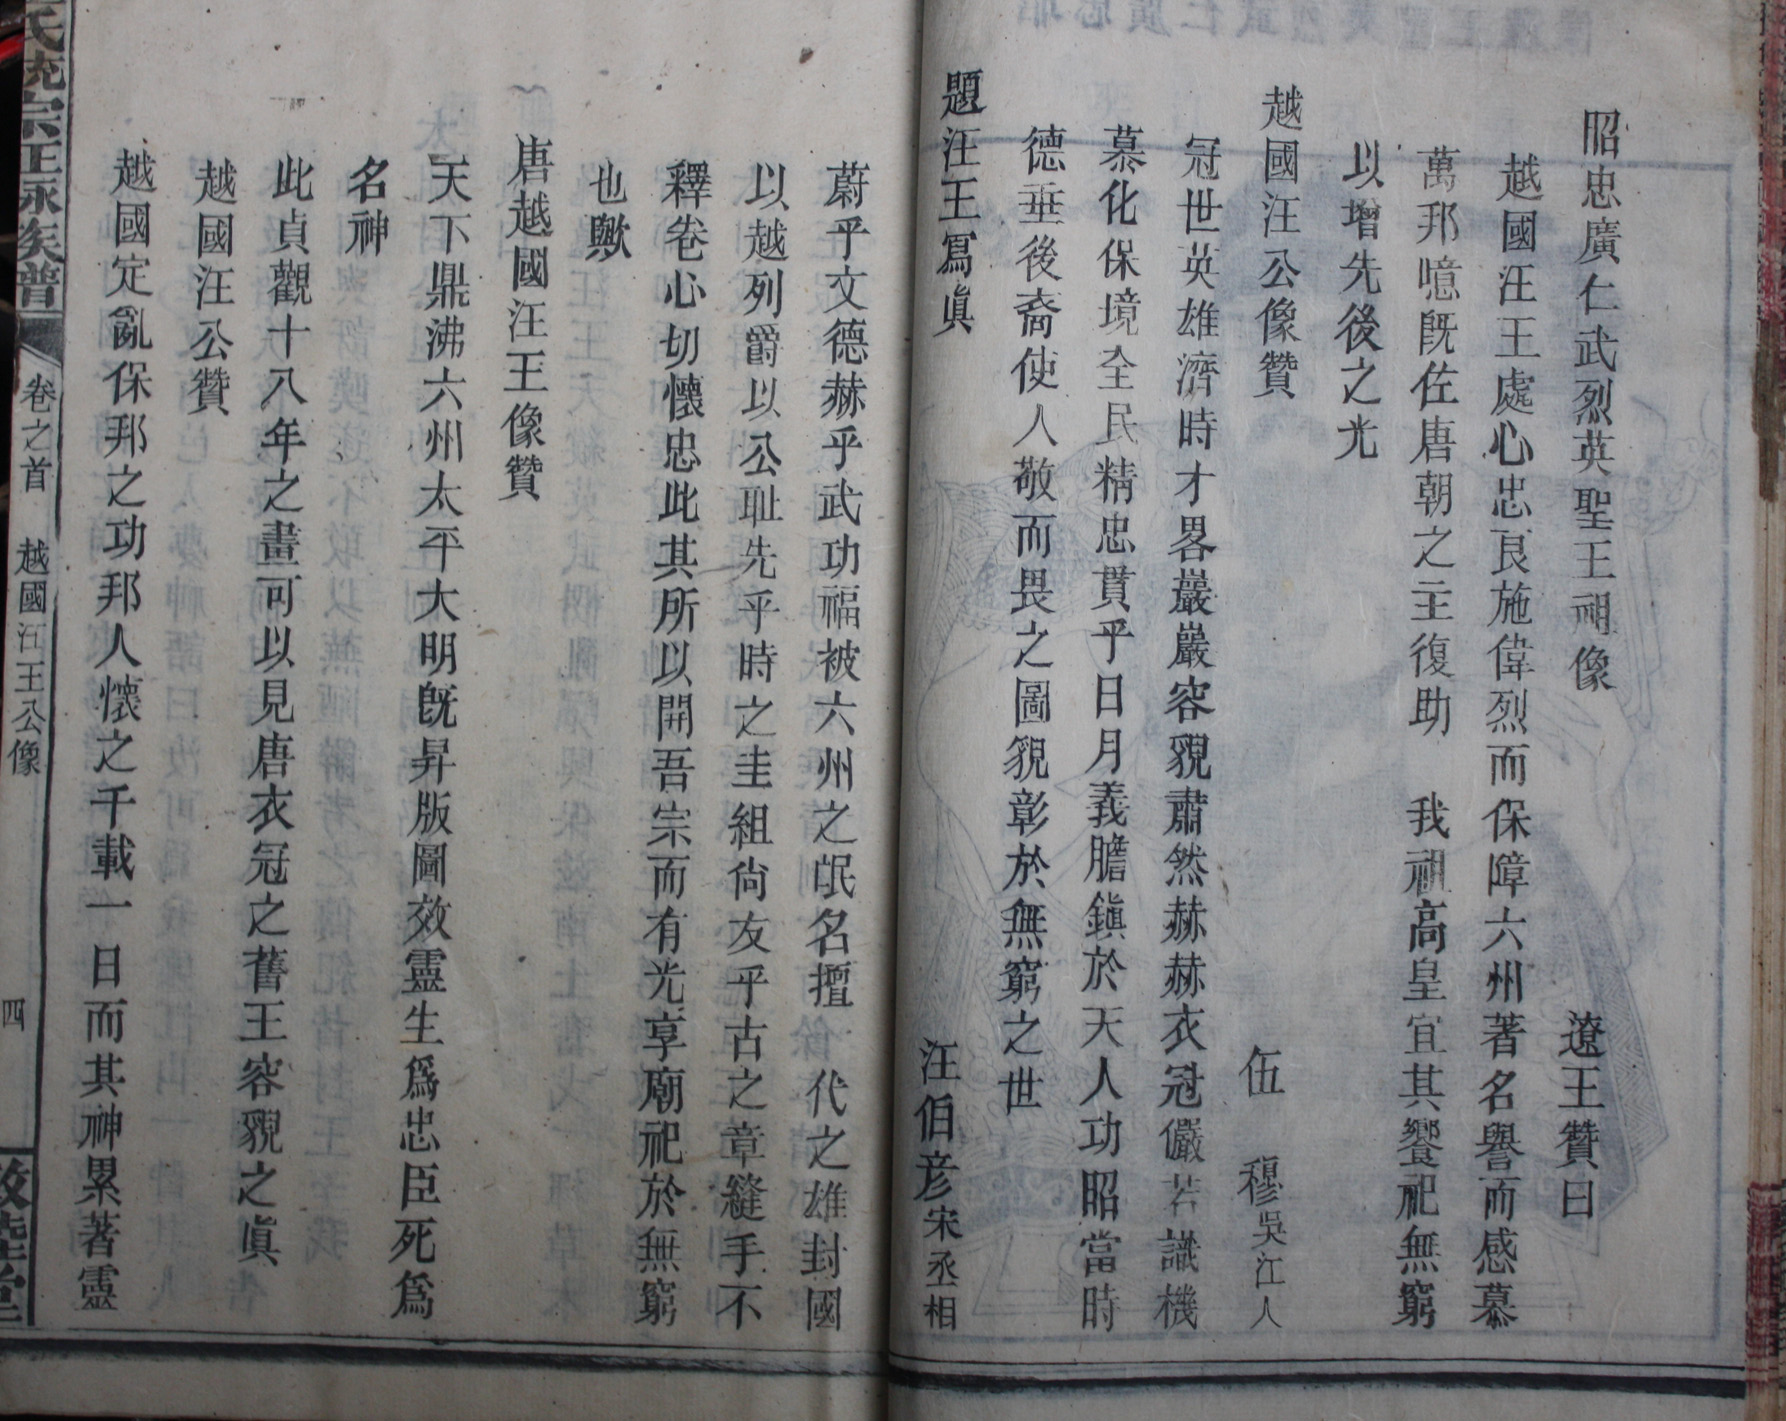 昭忠廣仁武烈英聖王祖像 遼王贊曰
越國汪王處心忠良施偉烈而保障六州著名譽而感慕
萬邦噫既佐唐朝之主復助 我祖高皇宜其饗祀無窮
以增先後之光
越國汪公像贊 伍 穆吳江人
冠世英雄濟時才畧巖巖容貌肅然赫赫衣冠儼若識機
慕化保境全民精忠貫乎日月義膽鎭於天人功昭當時
德垂後裔使人敬而畏之圖貌彰於無窮之世
題汪王寫眞 汪伯彥宋丞相
蔚乎文德赫乎武功福被六州之氓名擅 代之雄封國
以越列爵以公耻先乎時之圭組尙友乎古之章縫手不
釋卷心切懷忠此其所以開吾宗而有光享廟祀於無窮
也歟
唐越國汪王像贊
天下鼎沸六州太平大明旣昇版圖效靈生爲忠臣死爲
名神
此貞觀十八年之畫可以見唐衣冠之舊王容貌之眞
越國汪公贊
越國定亂保邦之功邦人懷之千載一日而其神累著靈
氏統宗正脉族譜 卷之首 越國汪王公像 四